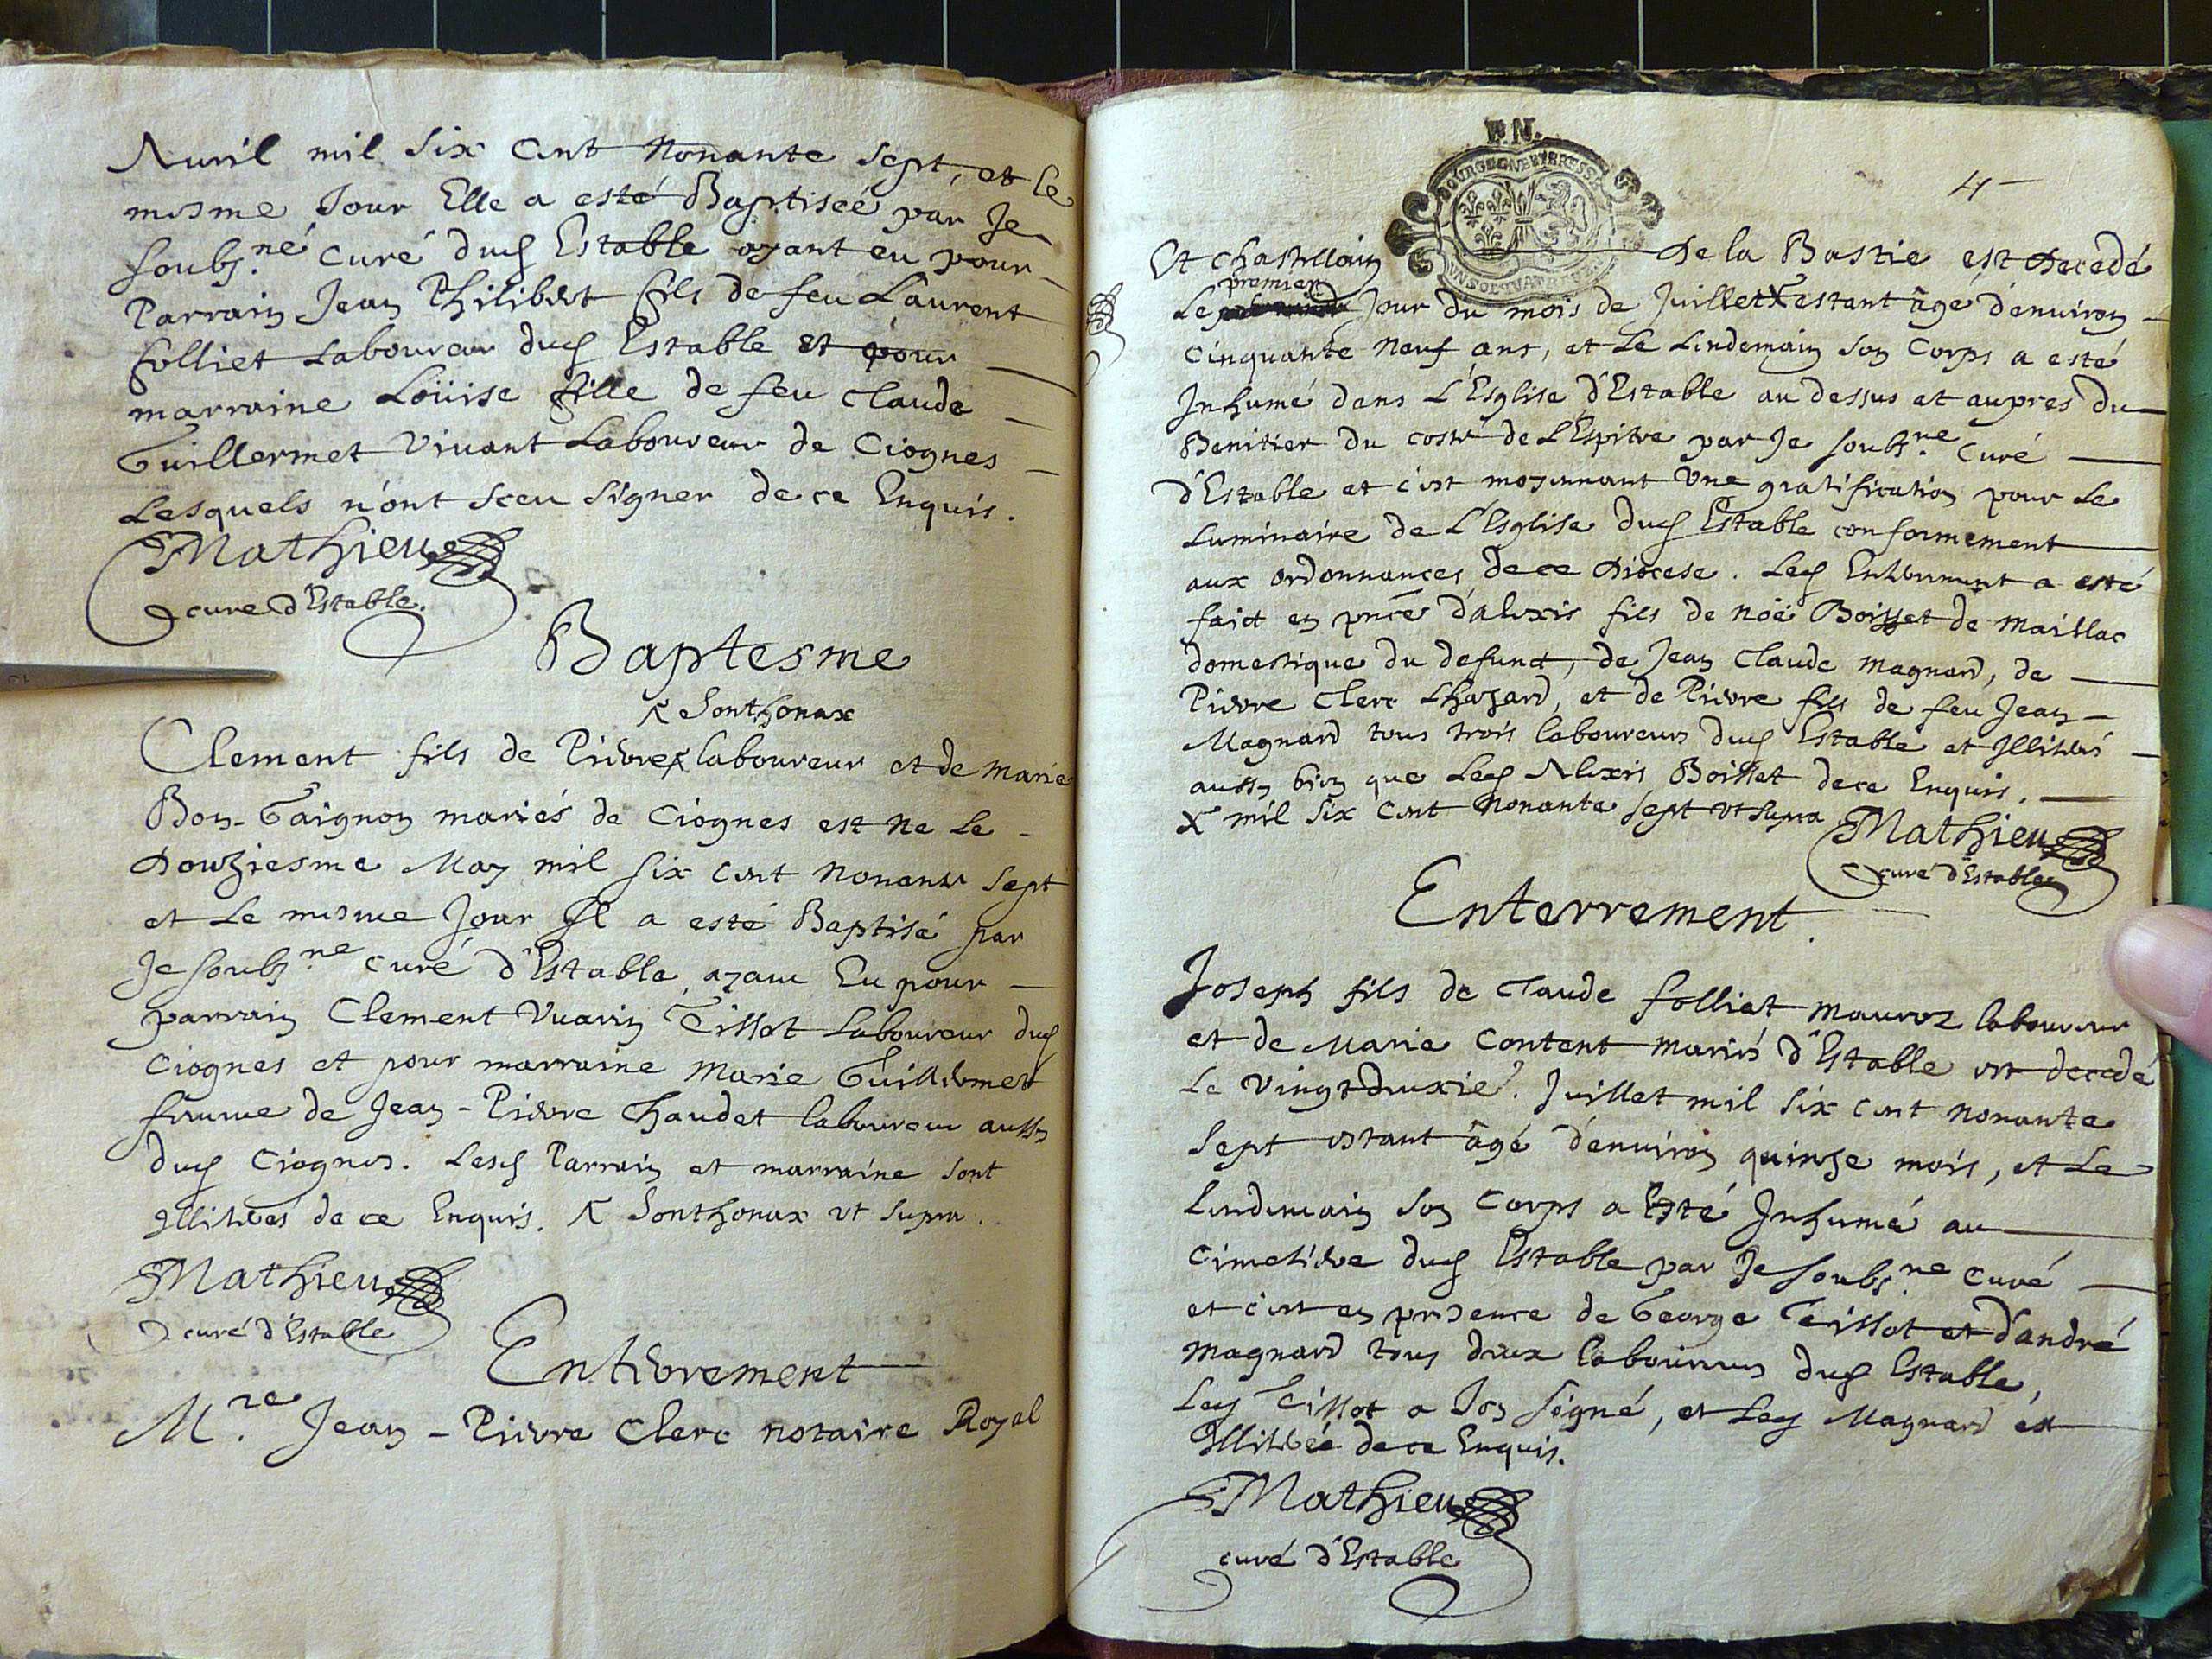 Auril mil six cent nonante sept, et le
mesme Jour Elle a esté Baptiseé par Je
soubs.né curé dud Estable ayant eu pour
Parrain Jean Philibert fils de feu Laurent
folliet Laboureur dud Estable et pour
marraine Loüise fille de feu Claude
Guillermet vivant Laboureur de Ciognes
Lesquels n'ont sceu signer de ce Enquis.
Mathieu
curé d'Estable.
Baptesme
Sonthonax
Clement fils de Pierre laboureur et de marie
Bon-Gaignon mariés de Ciognes est ne Le
Douziesme May mil six cent nonante sept
et Le mesme Jour Il a esté Baptisé par
Je soubs.né curé d'Estable, ayant Eu pour
parrain Clement Vuarin Tissot Laboureur dud
Ciognes et pour marraine Marie Guillermet
femme de Jean-Pierre Chaudet laboureur aussy
dud Ciognes. Lesd Parrain et marraine sont
Illiterés de ce Enquis. Sonthonax ut supra.
Mathieu
curé d'Estable
Enterrement
M.re Jean-Pierre Clerc notaire Royal
P.N.
BOURGOGNE ET BRESSE
4
Et Chastellain de la Bastie est decedé
premier
Le Jour du mois de Juillet X estant âgé d'enuiron
cinquante neuf ans, et Le Lendemain son corps a esté
Inhumé dans L'Esglise d'Estable au dessus et aupres du
Benitier du costé de L'Espitre par Je soubs.né curé
d'Estable et c'est moyennant Une gratification pour Le
Luminaire de L'Esglise dud Estable conformement
aux ordonnances de ce Diocese. Led Enterrement a esté
faict en pnce d'alexis fils de noë Boisset de maillac
domestique du defunct, de Jean Claude magnard, de
Pierre Clerc Lhazard, et de Pierre fils de feu Jean
Magnard tous trois laboureurs dud Estable et Illiterés
aussy bien que Led Alexis Boisset de ce Enquis.
X mil six cent nonante sept ut supra
Mathieu
curé d'Estable
Enterrement.
Joseph fils de Claude folliet mauroz laboureur
et de Marie Content mariés d'Estable est decedé
Le vingtdeuxie. Juillet mil six cent nonante
sept estant âgé d'enuiron quinze mois, et Le
Lendemain son corps a Esté Inhumé au
cimetiere dud Estable par Je soubs.né curé
et c'est en presence de George Tissot et d'andré
magnard tous deux laboureurs dud Estable,
Led Tissot a Icy signé, et Led Magnard est
Illiteré de ce Enquis.
Mathieu
curé d'Estable